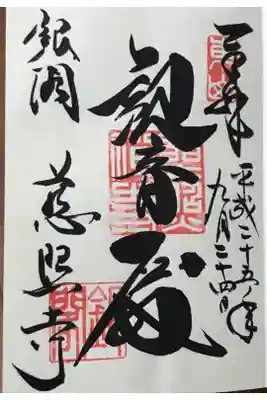 奉拝
平成二十五年
九月二十四日
観音殿
銀閣
慈照寺